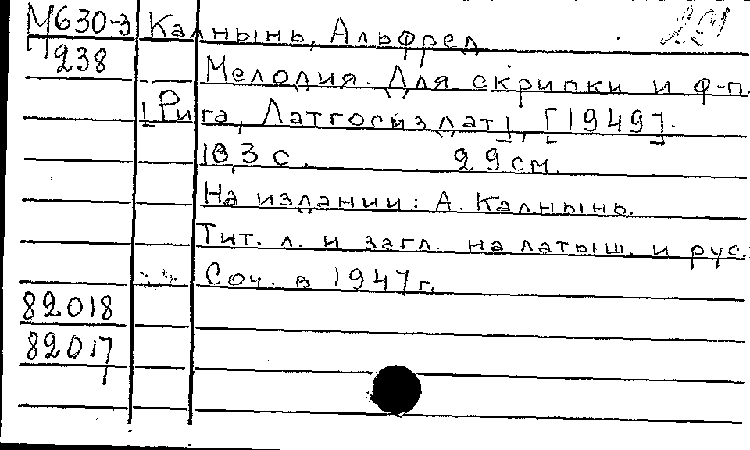 М630-3 Калнынь, Альфред
Н238 Мелодия. Для скрипки и ф-п
[Рига, Латгосиздат], [1949].
18,3 с. 29 см.
На издании: А. Калнынь.
Тит. л. и загл. на латыш. и рус.
Соч. в 1947 г.
82018
82017